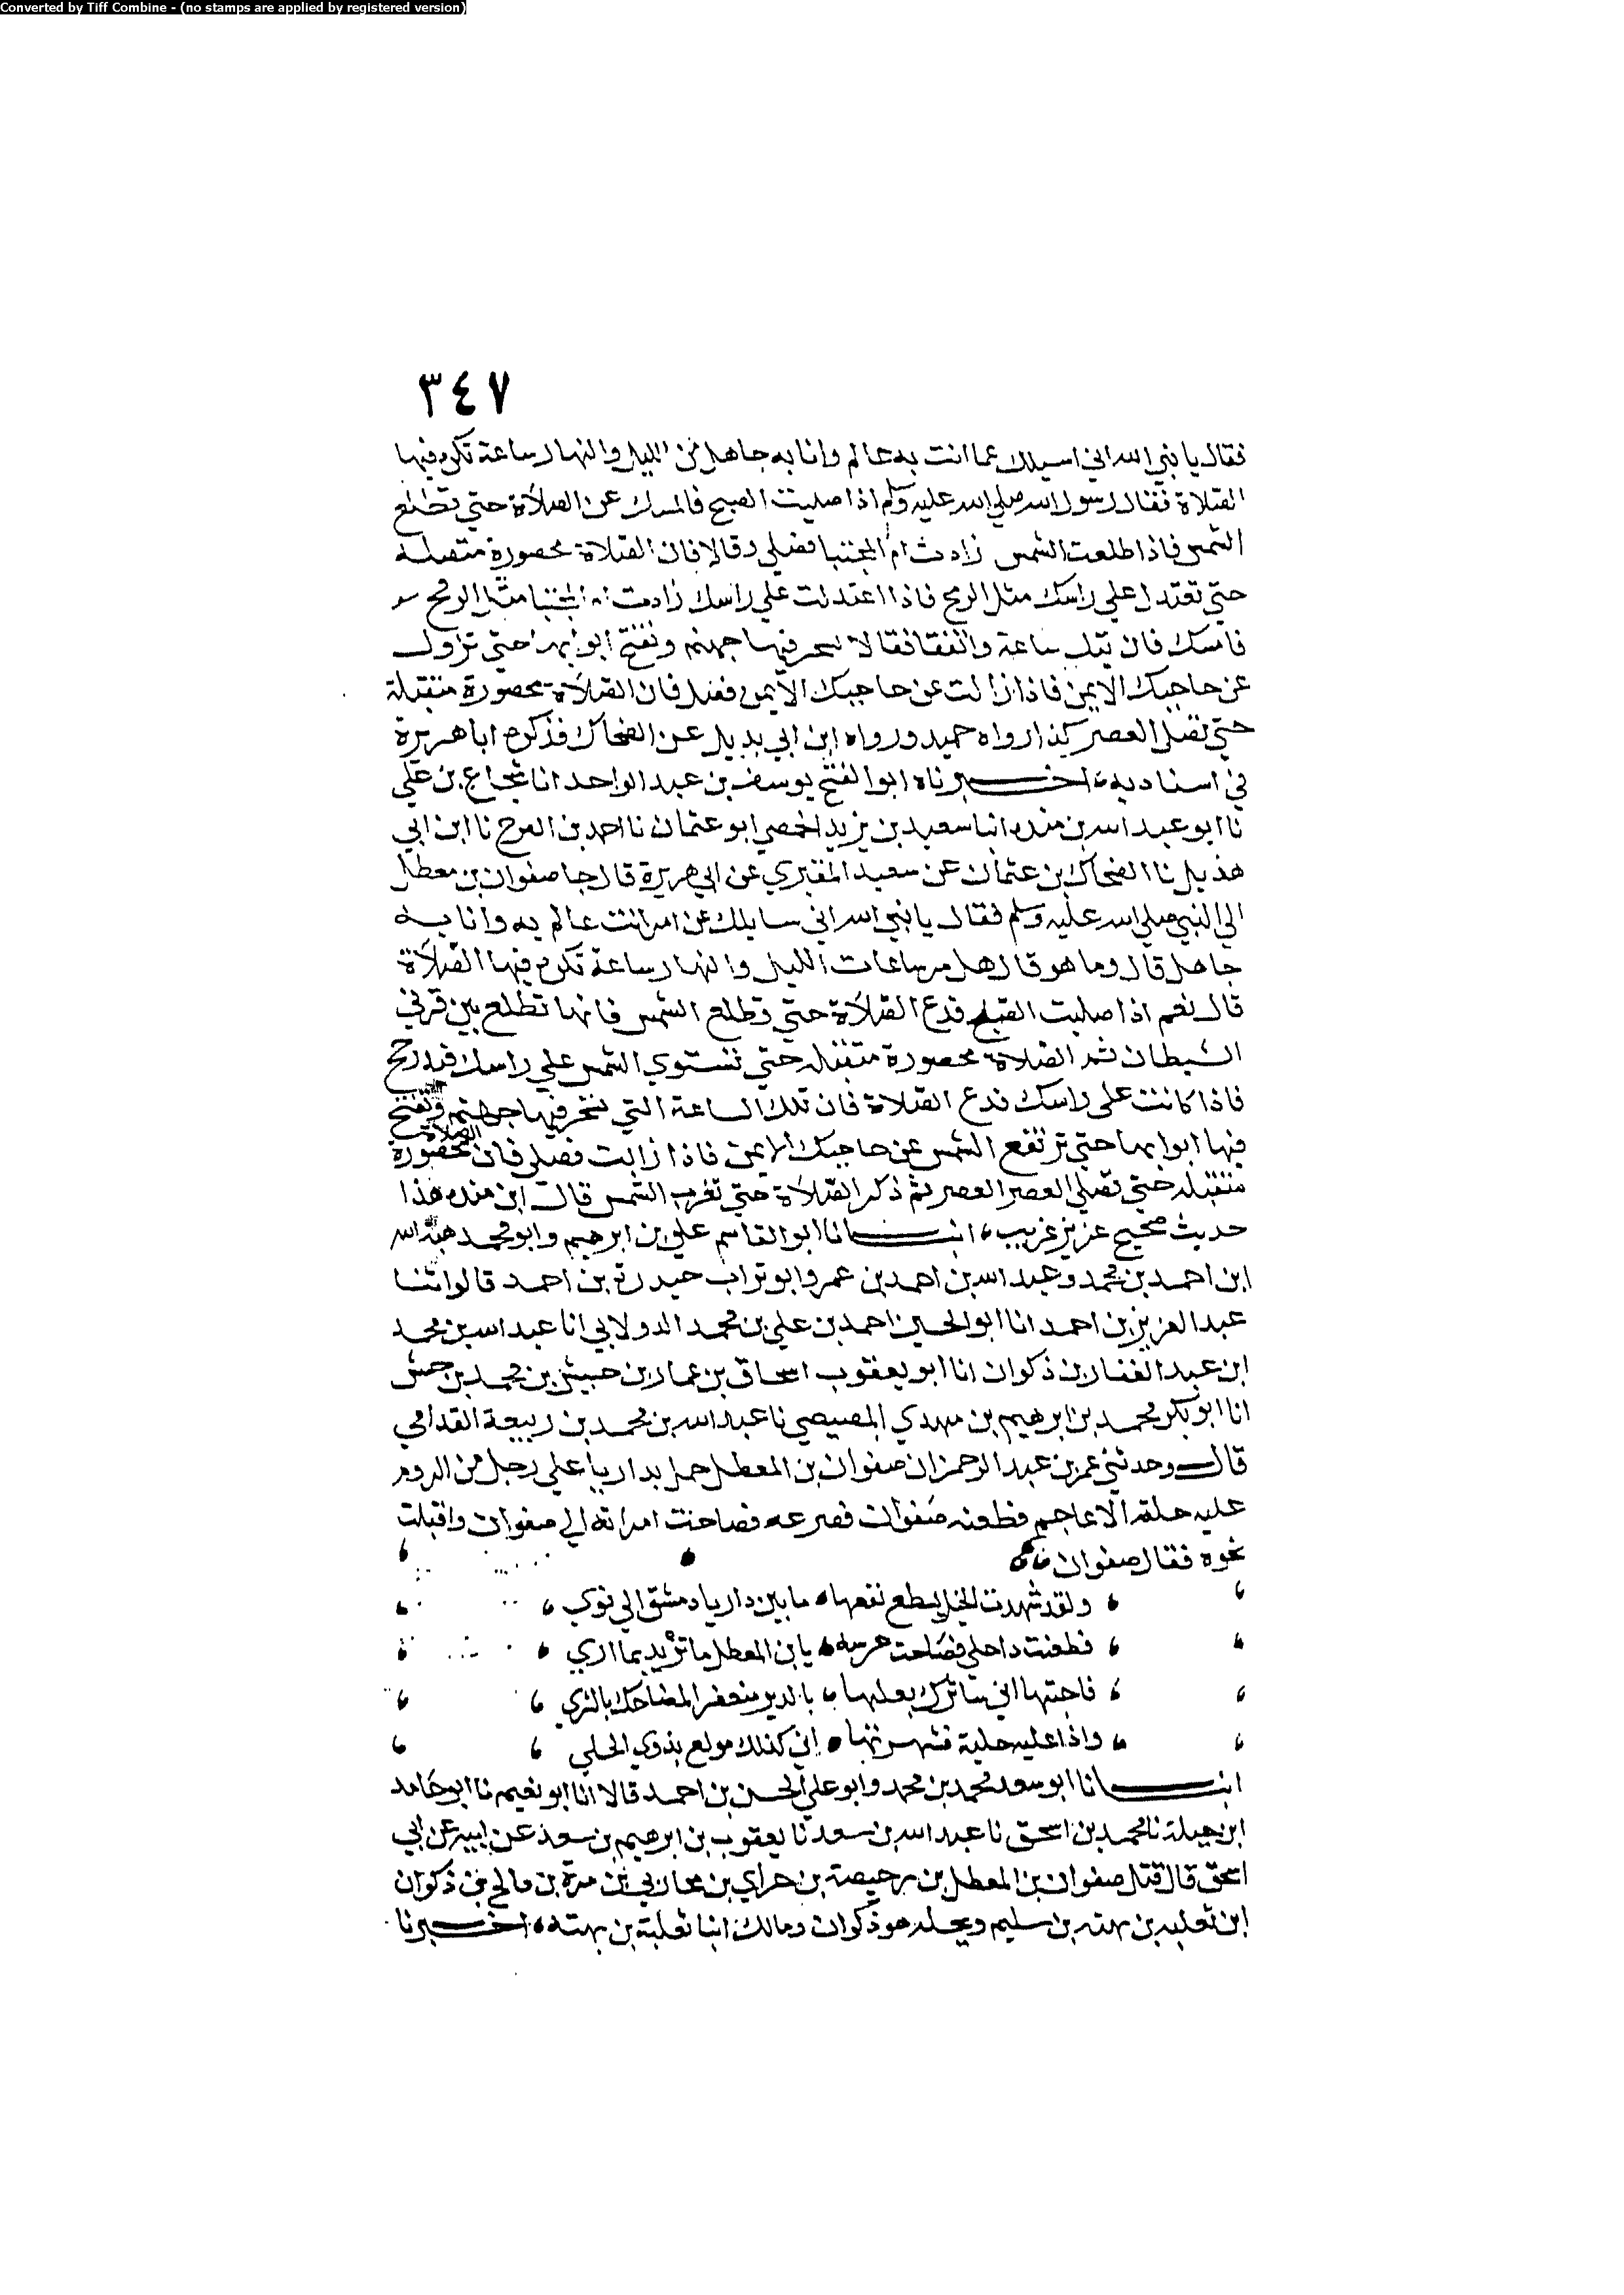 Converted by Tiff Combine - (no stamps are applied by registered version)
٣٤٧
فقال يا نبي الله اني اسيلك عما انت به عالم وانا به جاهل من الليل والنهار ساعة تكره فيها
الصلاة فقال رسول الله صلي الله عليه وسلم اذا صليت الصبح فامسك عن الصلاة حتي تطلع
الشمس فاذا طلعت الشمس زادت ام المجتبا فصلي وقالا فان الصلاة محصورة متصلة
حتي تعتدل علي راسك مثل الرمح فاذا اعتدلت علي راسك زادت ام المجتبا مثل الرمح
فامسك فان تلك ساعة واتفقا فقالا تسجر فيها جهنم وتفتح ابوابها حتي تزول
عن حاجبك الايمن فاذا زالت عن حاجبك الايمن فصل فان الصلاة محصورة متقبلة
حتي تصلي العصر كذا رواه حميد ورواه ابن ابي بديل عن الضحاك فذكر م ابا هريرة
في اسناديه اخبرناه ابو الفتح يوسف بن عبد الواحد انا شجاع بن علي
نا ابو عبد الله بن منده انبا سعيد بن يزيد الحمصي ابو عثمان نا احمد بن الفرج نا ابن ابي
هذيل نا الضحاك بن عثمان عن سعيد المقبري عن ابي هريرة قال جا صفوان بن معطل
الي النبي صلي الله عليه وسلم فقال يا نبي الله اني سايلك عن امر انت عالم به وانا به
جاهل قال وما هو قال هل من ساعات الليل والنهار ساعة تكره فيها الصلاة
قال نعم اذا صليت الصبح فدع الصلاة حتي تطلع الشمس فانها تطلع بين قرني
الشيطان ثم الصلاة محصورة متقبله حتي تستوي الشمس علي راسك قيد رمح
فاذا كانت علي راسك فدع الصلاة فان تلك الساعة التي تسجر فيها جهنم وتفتح
فيها ابوابها حتي ترتفع الشمس عن حاجبك الايمن فاذا زالت فصلي فان الصلاة محصورة
متقبله حتي تصلي العصر العصر ثم ذكر الصلاة حتي تغرب الشمس قال ابن منده هذا
حديث صحيح عزيز غريب انبانا ابو القاسم علي بن ابرهيم وابو محمد هبة الله
ابن احمد بن محمد وعبد الله بن احمد بن عمر وابو تراب حيدرة بن احمد قالوا انبا
عبد العزيز بن احمد انا ابو الحسين احمد بن علي بن محمد الدولابي انا عبد الله بن محمد
ابن عبد الغفار بن ذكوان انا ابو يعقوب اسحاق بن عمار بن حبيش بن محمد بن حبش
انا ابو بكر محمد بن ابرهيم بن مهدي المصيصي نا عبد الله بن محمد بن ربيعة القدامي
قال وحدثني عمر بن عبد الرحمن ان صفوان بن المعطل حمل بداريا علي رجل من الروم
عليه حلة الاعاجم فطعنه صفوان فصرعه فصاحت امراته الي صفوان واقبلت
نحوه فقال صفوان
ولقد شهدت الخيل يسطع نقعها ما بين داريا دمشق الي نوي
فطعنت ذا حلي فصاحت عرسه يا ابن المعطل ما تريد بما اري
فاجبتها اني ساترك بعلها بالدير منعفر المضاحك بالثري
واذا عليه حلية فشهرتها اني كذلك مولع بذوي الحلي
انبانا ابو سعد محمد بن محمد وابو علي الحسن بن احمد قالا انا ابو نعيم نا ابو حامد
ابن جبلة نا محمد بن اسحق نا عبد الله بن سعد نا يعقوب بن ابرهيم بن سعد عن ابيه عن ابي
اسحق قال قتل صفوان بن المعطل بن رحيصة بن خزاي بن محاربي بن مرة بن فالج بن ذكوان
ابن ثعلبه بن بهثه بن سليم وبجله هو ذكوان ومالك ابنا ثعلبة بن بهثه اخبرنا